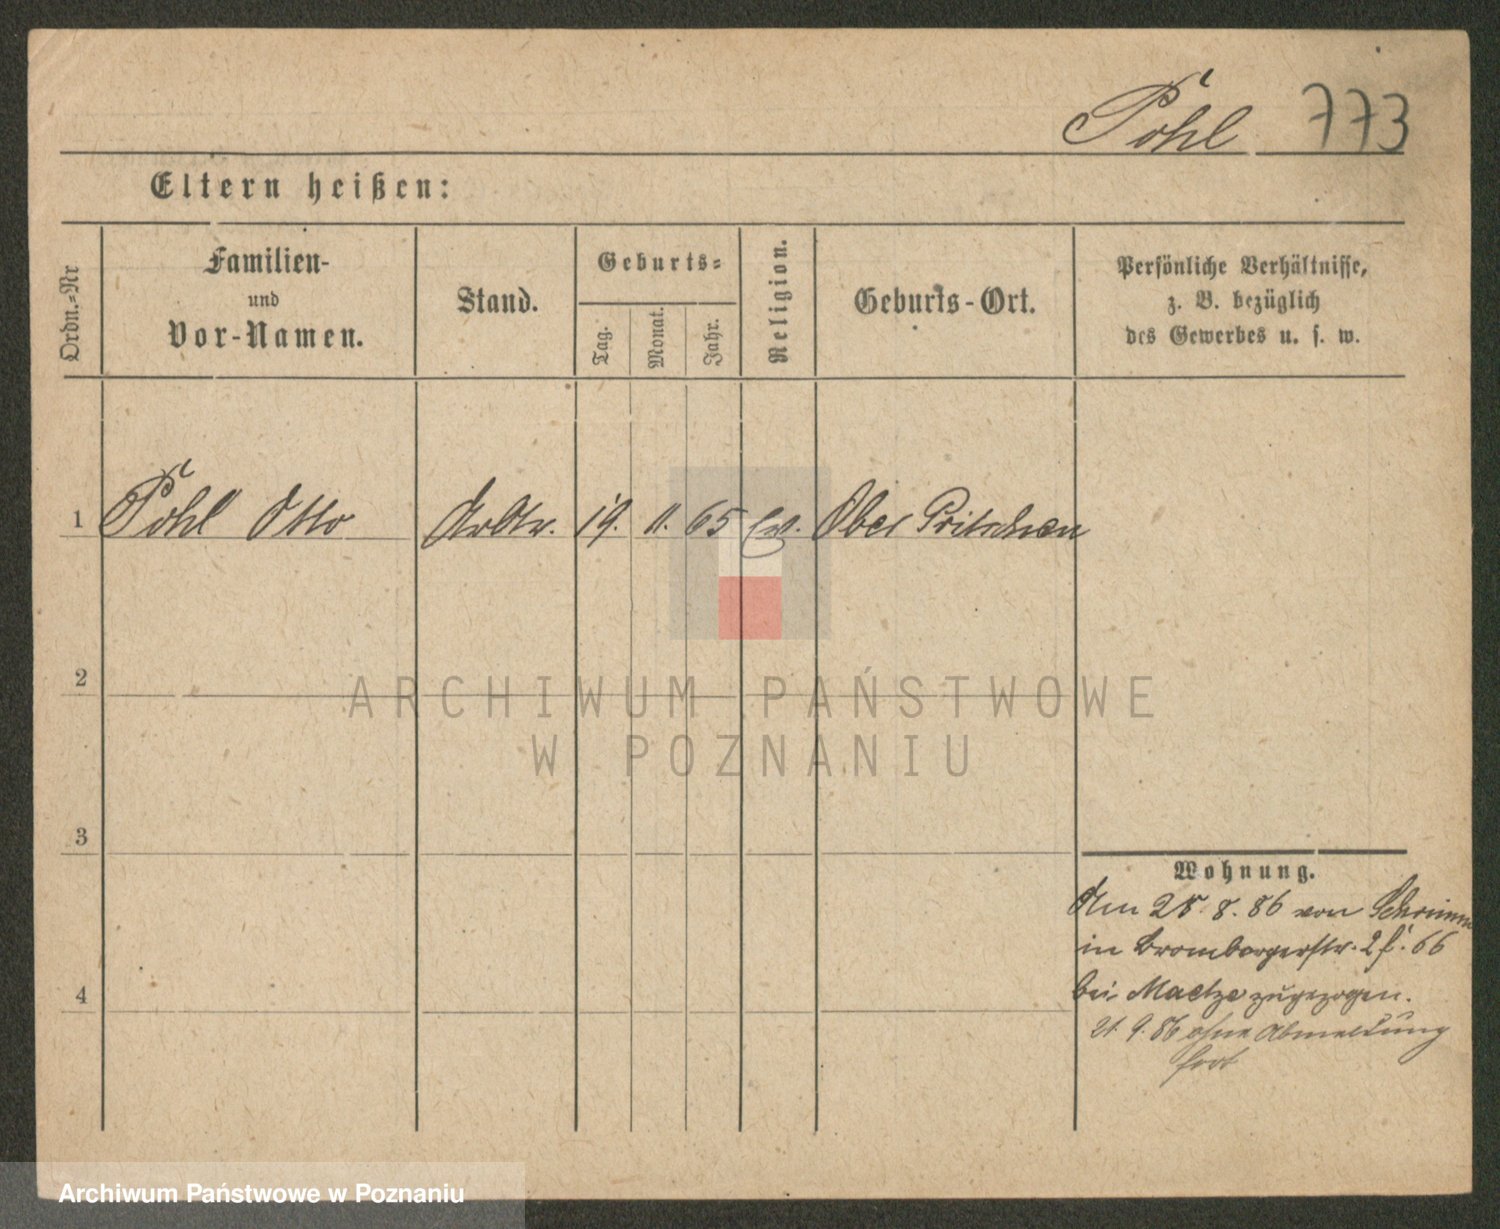 Pohl 773
Eltern heißen:
Ordn.=Nr
Familien-
und
Vor-Namen.
Stand.
Geburts=
Tag.
Monat.
Jahr.
Religion.
Geburts-Ort.
Persönliche Verhältnisse,
z. B. bezüglich
des Gewerbes u. s. w.
1 Pohl Otto Arbtr. 19. 11. 65 Ev. Ober Pritschen
2
3
4
Wohnung.
Am 28. 8. 86 von Schrimm
in Brombergerstr. 2 66
bei Matze zugezogen.
21. 9. 86 ohne Abmeldung
fort
ARCHIWUM PAŃSTWOWE
W POZNANIU
Archiwum Państwowe w Poznaniu